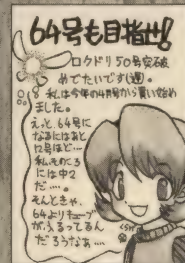 64号も目指せ!
ロクドリ50号突破
めでたいです(遅)。
私は今年の4月号から買い始め
ました。
えっと、64号に
なるにはあと
12号ほど…
私、そのころ
には中2
だ…。
そんときゃ、
64よりキューブ
が、ふるってるん
だろうなぁ…